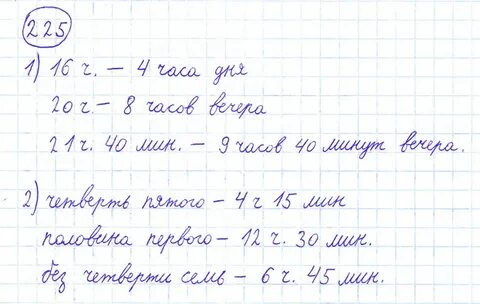 225
1) 16 ч. – 4 часа дня
20 ч. – 8 часов вечера
21 ч. 40 мин. – 9 часов 40 минут вечера.
2) четверть пятого – 4 ч 15 мин
половина первого – 12 ч. 30 мин.
без четверти семь – 6 ч. 45 мин.